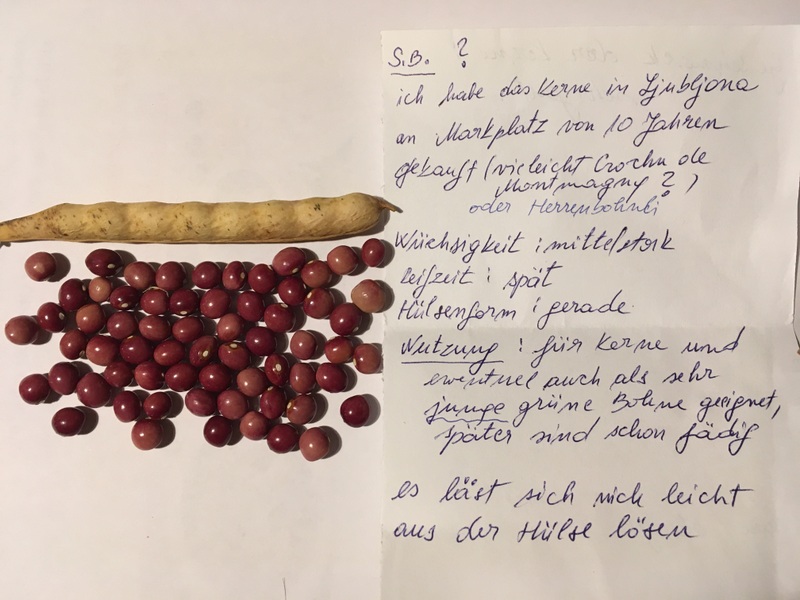 S.B. ?
ich habe das Kerne in Ljubljona
an Markplatz von 10 Jahren
gekauft (vieleicht Crochu de
Montmagny ? )
oder Herrenböhnli
Wüchsigkeit : mittelstark
Reifzeit : spät
Hülsenform : gerade
Nutzung : für Kerne und
eventuel auch als sehr
junge grüne Bohne geeignet,
später sind schon fädig
es läst sich nick leicht
aus der Hülse lösen